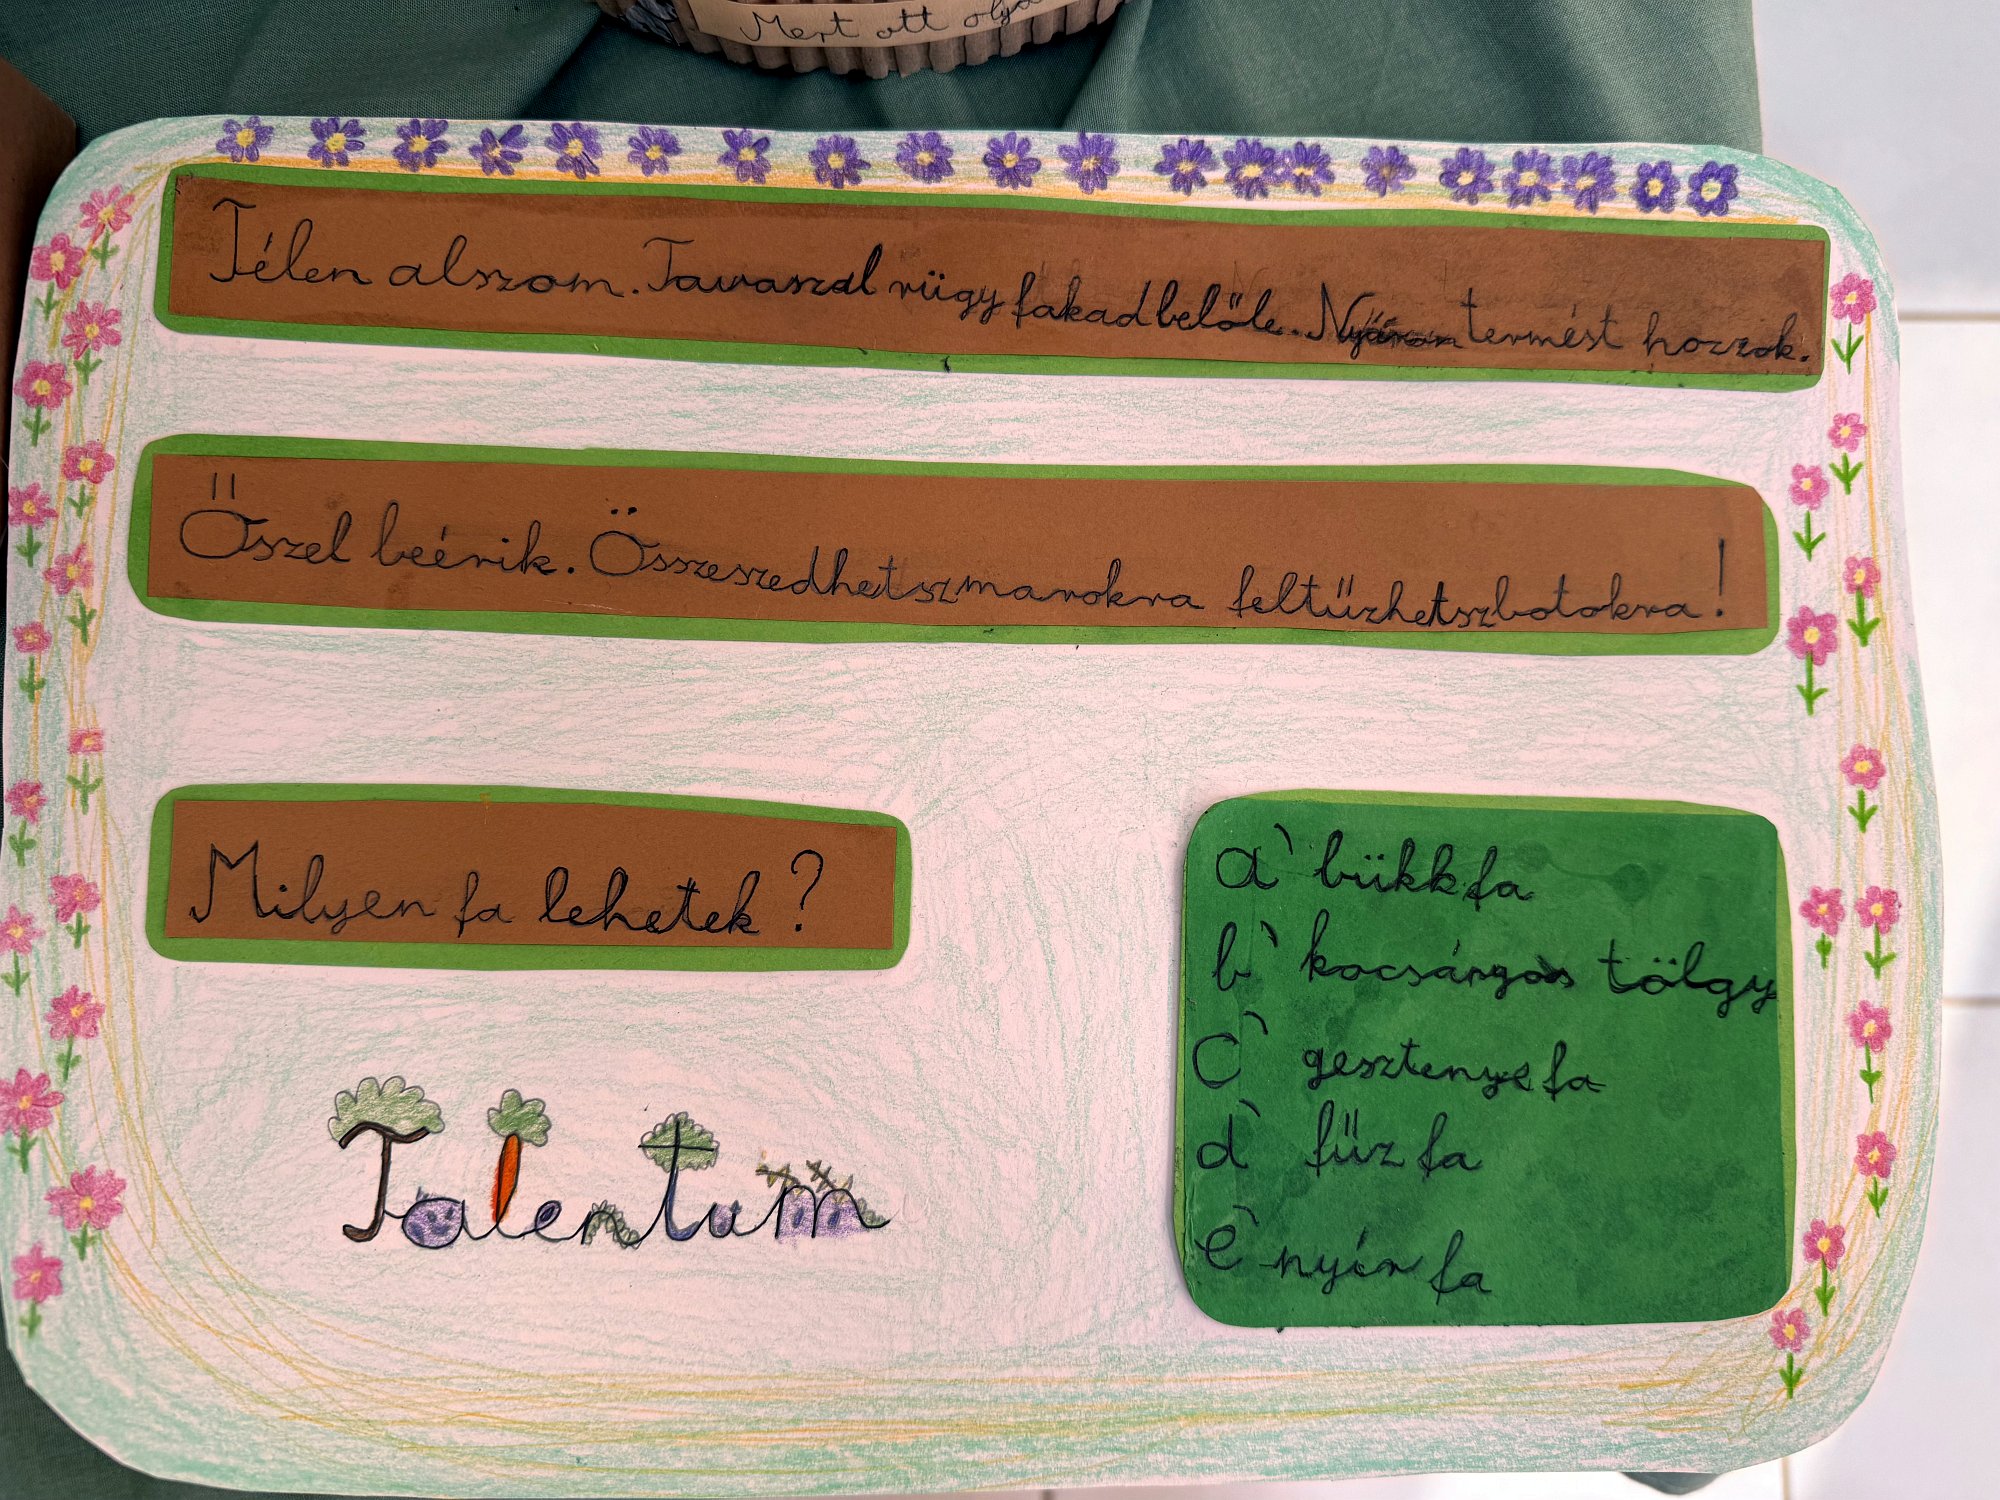 Mert ott
Télen alszom. Tavaszal rügy fakad belőle. Nyáron termést hozzok.
Ősszel beérik. Összeszedhetsz marokra feltűzhetsz botokra!
Milyen fa lehetek?
a) bükkfa
b) kocsángos tölgy
c) gesztenyefa
d) fűzfa
e) nyírfa
Talentum